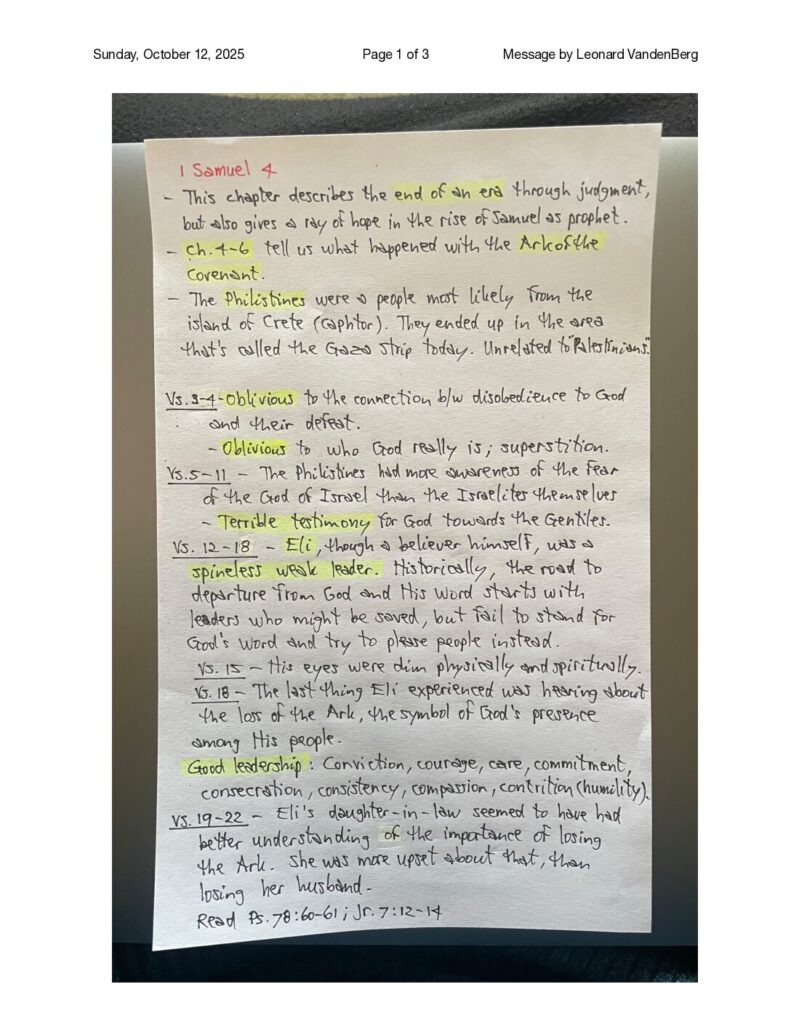 Sunday, October 12, 2025 Page 1 of 3 Message by Leonard VandenBerg
1 Samuel 4
- This chapter describes the end of an era through judgment,
but also gives a ray of hope in the rise of Samuel as prophet.
- Ch. 4-6 tell us what happened with the Ark of the
Covenant.
- The Philistines were a people most likely from the
island of Crete (Caphtor). They ended up in the area
that's called the Gaza Strip today. Unrelated to "Palestinians."
Vs. 3-4 - Oblivious to the connection b/w disobedience to God
and their defeat.
- Oblivious to who God really is; superstition.
Vs. 5-11 - The Philistines had more awareness of the fear
of the God of Israel than the Israelites themselves
- Terrible testimony for God towards the Gentiles.
Vs. 12-18 - Eli, though a believer himself, was a
spineless weak leader. Historically, the road to
departure from God and His Word starts with
leaders who might be saved, but fail to stand for
God's Word and try to please people instead.
Vs. 15 - His eyes were dim physically and spiritually.
Vs. 18 - The last thing Eli experienced was hearing about
the loss of the Ark, the symbol of God's presence
among His people.
Good leadership: Conviction, courage, care, commitment,
consecration, consistency, compassion, contrition (humility).
Vs. 19-22 - Eli's daughter-in-law seemed to have had
better understanding of the importance of losing
the Ark. She was more upset about that, than
losing her husband.
Read Ps. 78:60-61; Jr. 7:12-14